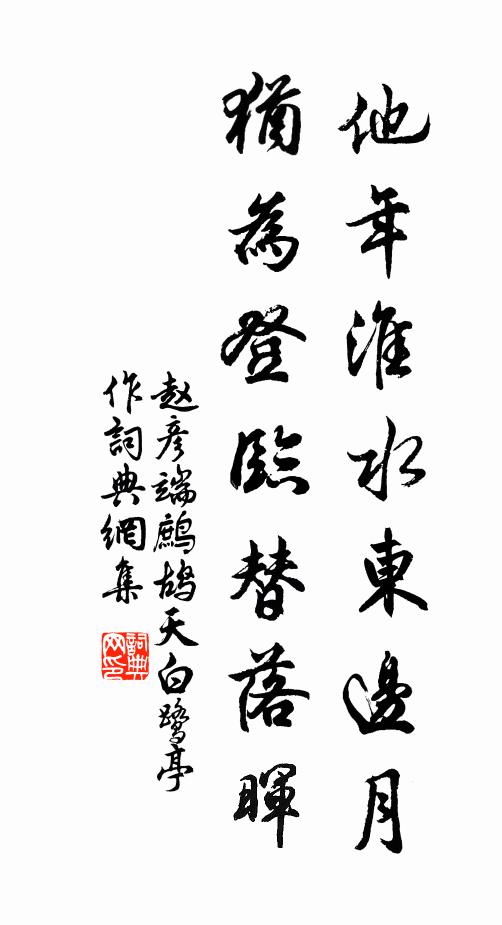 他年淮水東邊月
猶為登臨替落暉
赵彦端鷓鴣天白鹭亭
作詞典網集
詞典网印